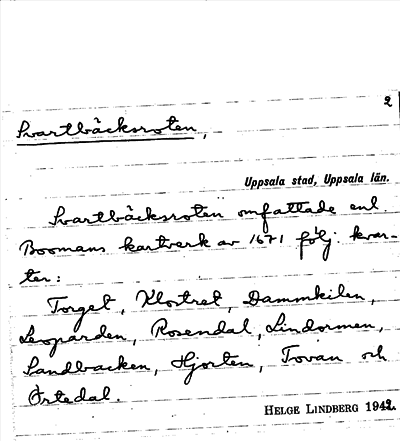 2
Svartbäcksroten,
Uppsala stad, Uppsala län.
Svartbäcksroten omfattade enl
Boomans kartverk av 1671 följ. kvar-
ter:
Torget, Klostret, Dammkilen,
Leoparden, Rosendal, Lindormen,
Sandbacken, Hjorten, Tovan och
Örtedal.
HELGE LINDBERG 1942.